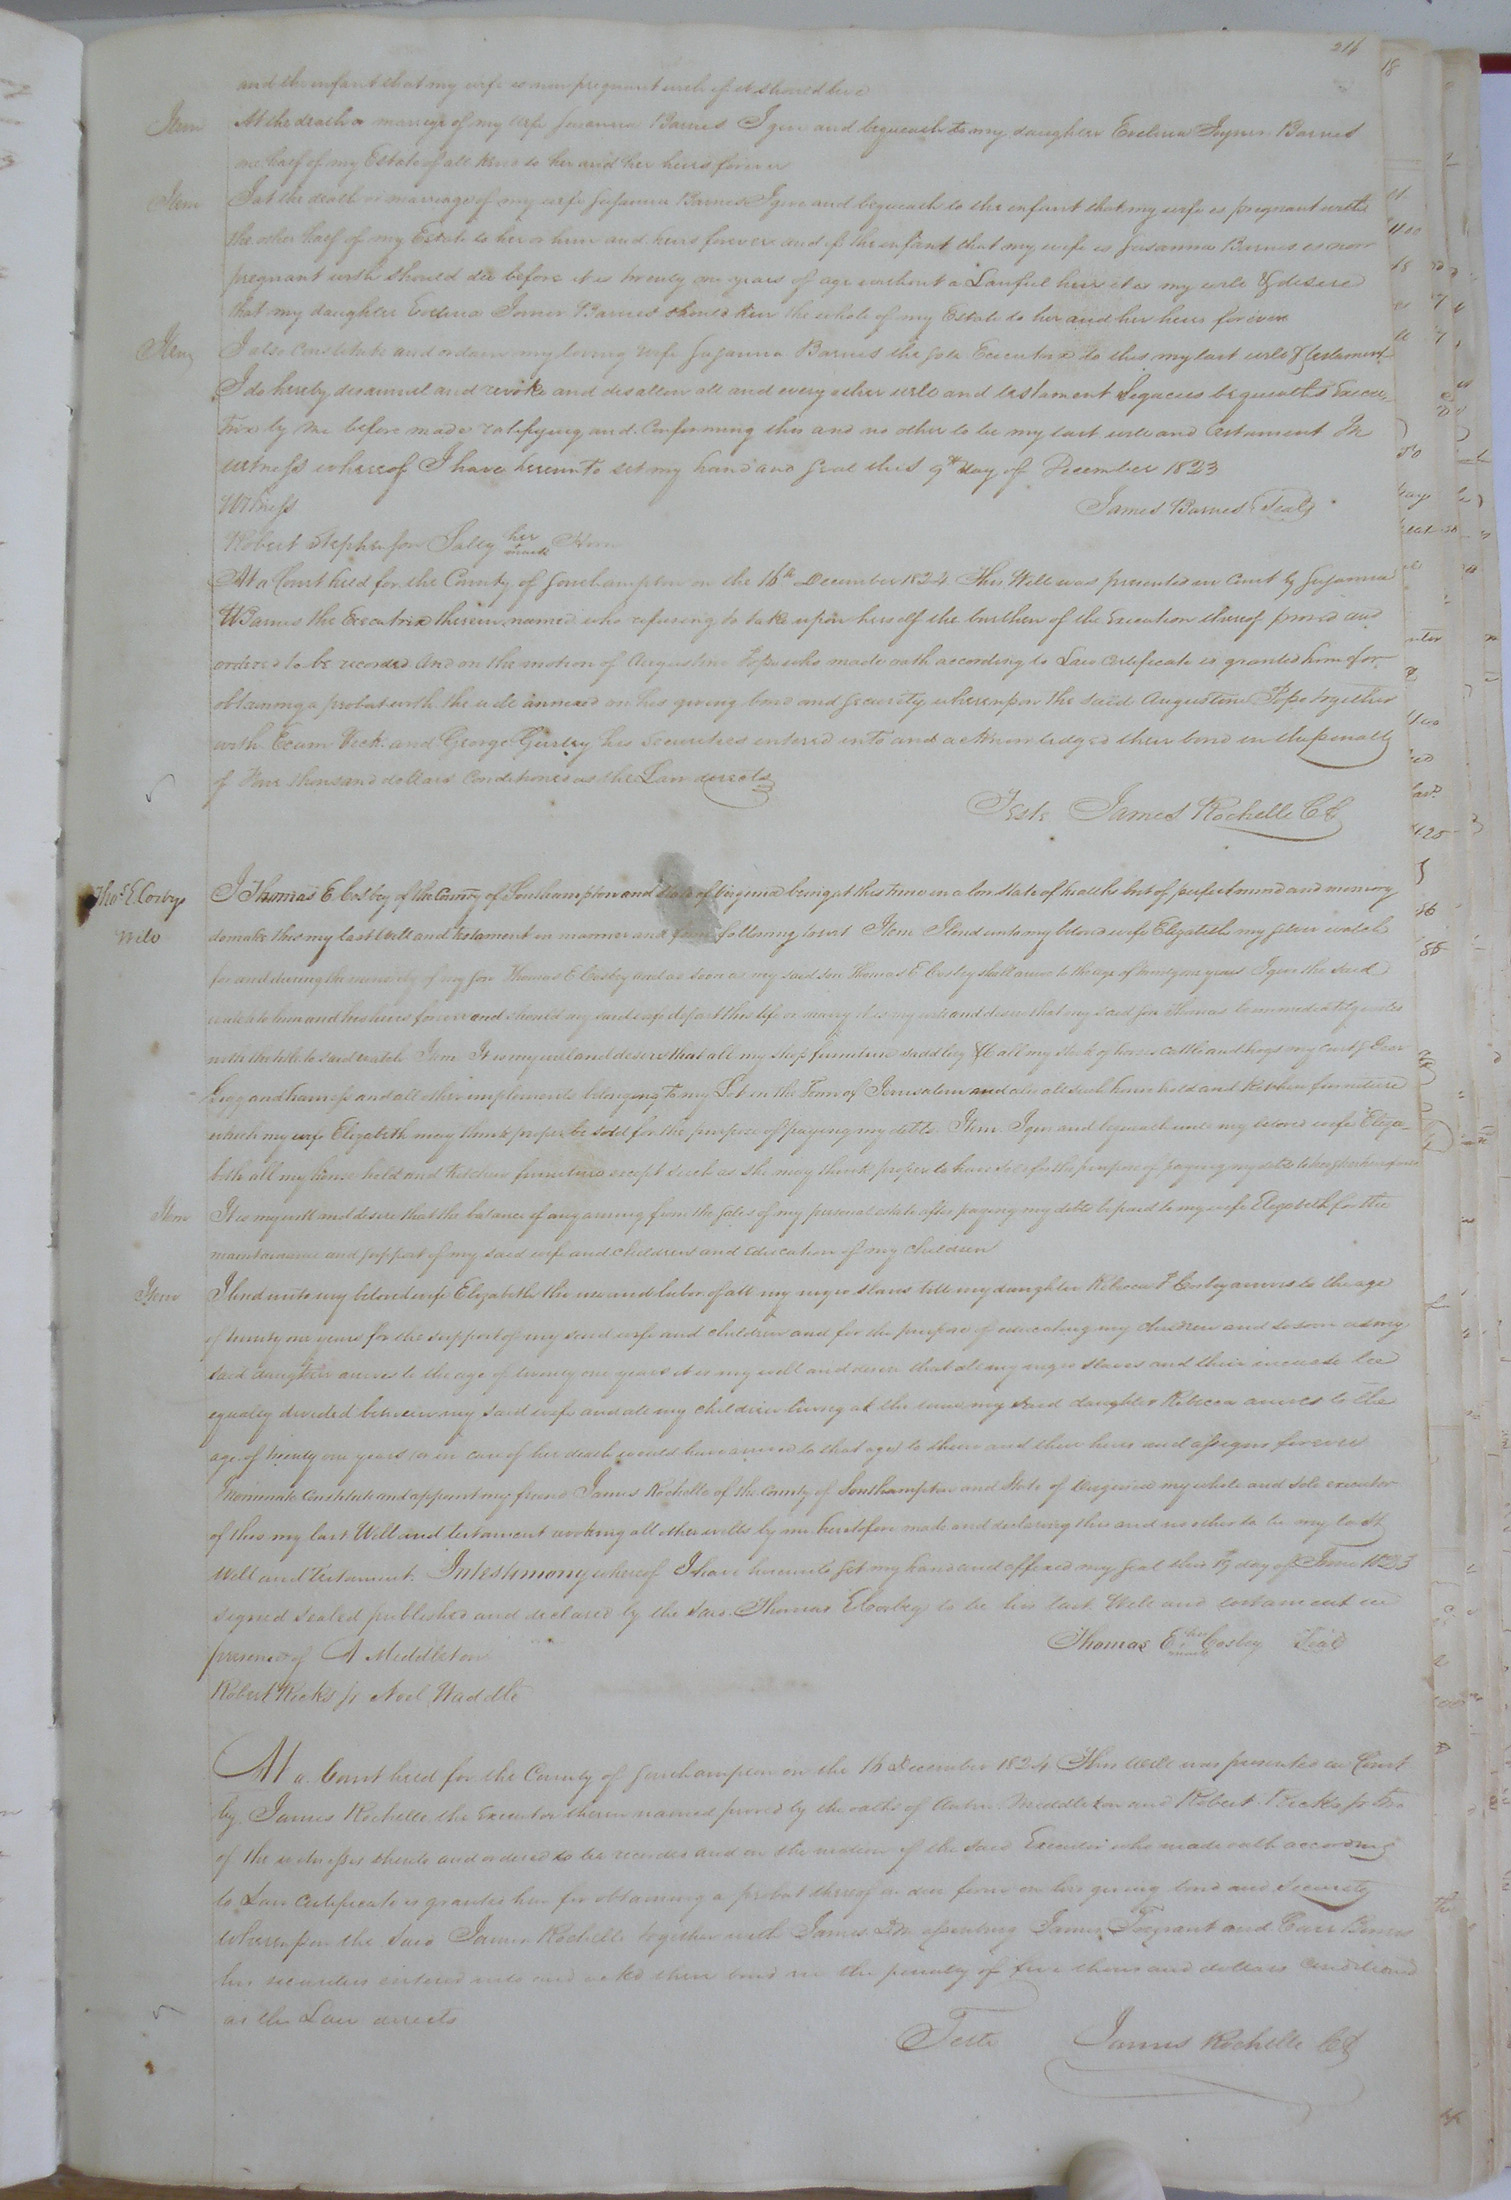 216
and the infant that my wife is now pregnant with if it should live
Item At the death or marriage of my wife Susanna Barnes I give and bequeath to my daughter Evelina Joyner Barnes
one half of my Estate of all kind to her and her heirs forever
Item I at the death or marriage of my wife Susanna Barnes I give and bequeath to the infant that my wife is pregnant with
the other half of my Estate to her or him and heirs forever and if the infant that my wife is Susanna Barnes is now
pregnant with should die before it is twenty one years of age without a Lawful heir it is my will & desire
that my daughter Evelina Joiner Barnes should have the whole of my Estate to her and her heirs forever
Item I also Constitute and ordain my loving wife Susanna Barnes the sole Executrix to this my last will & testament
I do hereby disannul and revoke and disallow all and every other will and testament Legacies bequeaths Execu-
trix by me before made ratifying and Confirming this and no other to be my last will and testament In
witness whereof I have hereunto set my hand and Seal this 9th day of December 1823
Witness James Barnes Seal
Robert Stephenson Sally her mark
At a Court held for the County of Southampton on the 16th December 1824 This Will was presented in Court by Susanna
Barnes the Executrix therein named who refusing to take upon herself the burthen of the Execution thereof proved and
ordered to be recorded And on the motion of Augustine Pope who made oath according to Law certificate is granted him for
obtaining a probat with the will annexed on his giving bond and security whereupon the said Augustine Pope together
with Exum Vick and George Gurley his Securities entered into and acknowledged their bond in the penalty
of Four thousand dollars Conditioned as the Law directs
Teste James Rochelle CC
Thos. E. Cosbys I Thomas E Cosby of the County of Southampton and State of Virginia being at this time in a low state of health but of perfect mind and memory
Will do make this my last Will and testament in manner and form following towit Item I lend unto my beloved wife Elizabeth my silver watch
for and during the minority of my son Thomas E Cosby and as soon as my said son Thomas E Cosby shall arrive to the age of twenty one years I give the said
watch to him and his heirs forever and should my said wife depart this life or marry it is my will and desire that my said son Thomas be immediately vested
with the title to said watch Item It is my will and desire that all my shop furniture saddlery &c all my stock of horses cattle and hogs my cart &
Gigg and harness and all other implements belonging to my Lot in the Town of Jerusalem and also all such house hold and Kitchen furniture
which my wife Elizabeth may think proper be sold for the purpose of paying my debts Item I give and bequeath unto my beloved wife Eliza-
beth all my house hold and kitchen furniture except such as she may think proper to have sold for the purpose of paying my debts to her & her heirs forever
Item It is my will and desire that the balance if any arising from the sales of my personal estate after paying my debts be paid to my wife Elizabeth for the
maintainance and support of my said wife and children and education of my children
Item I lend unto my beloved wife Elizabeth the use and labor of all my negro slaves till my daughter Rebecca P Cosby arrives to the age
of twenty one years for the support of my said wife and children and for the purpose of educating my children and so soon as my
said daughter arrives to the age of twenty one years it is my will and desire that all my negro slaves and their increase be
equally divided between my said wife and all my children living at the time my said daughter Rebecca arrives to the
age of twenty one years (or in case of her death would have arrived to that age) to them and their heirs and assigns forever
I nominate Constitute and appoint my friend James Rochelle of the County of Southampton and State of Virginia my whole and sole executor
of this my last Will and testament revoking all other wills by me heretofore made and declaring this and no other to be my last
Will and Testament. In testimony whereof I have hereunto set my hand and affixed my seal this 19 day of June 1823
signed sealed published and declared by the said Thomas E Cosby to be his last Will and testament in
presence of A Middleton Thomas E his mark Cosby Seal
Robert Ricks jr Noel Waddle
At a Court held for the County of Southampton on the 16 December 1824 This Will was presented in Court
by James Rochelle the Executor therein named proved by the oaths of Middleton and Robert Ricks jr two
of the witnesses thereto and ordered to be recorded and on the motion of the said Executor who made oath according
to Law certificate is granted him for obtaining a probat thereof in due form on his giving bond and security
whereupon the said James Rochelle together with James James Trezvant and Carr Bowers
his securities entered into and ackd their bond in the penalty of five thousand dollars Conditioned
as the Law directs
Teste James Rochelle CC